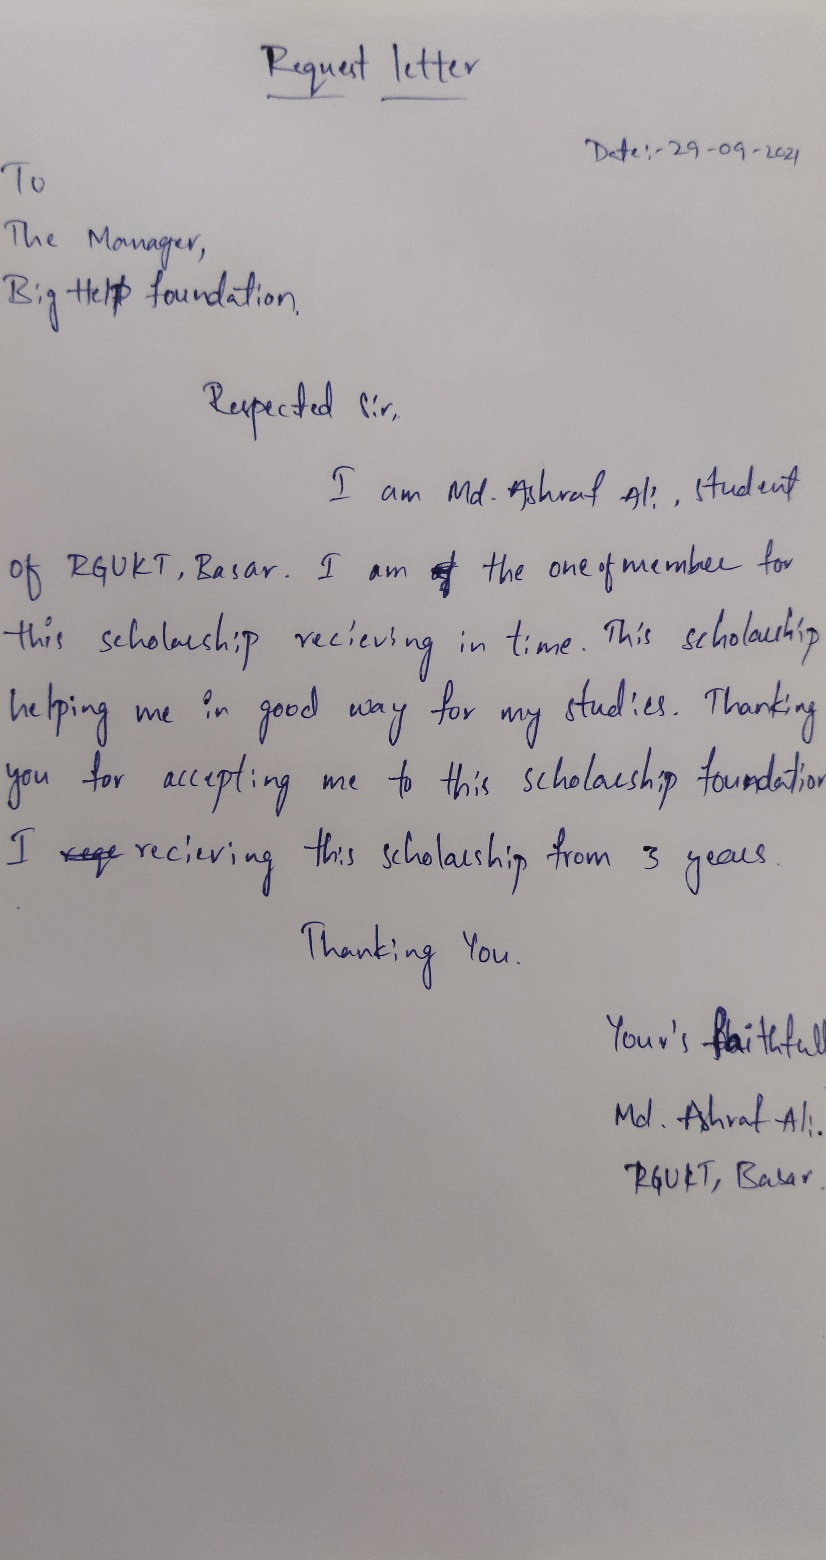 Request letter
Date:-29-09-2021
To
The Manager,
Big Help foundation.
Respected Sir,
I am Md. Ashraf Ali, student
of RGUKT, Basar. I am the one of member for
this scholarship recieving in time. This scholarship
helping me in good way for my studies. Thanking
you for accepting me to this scholarship foundation
I recieving this scholarship from 3 years.
Thanking You.
Your's faithfull
Md. Ashraf Ali.
RGUKT, Basar.